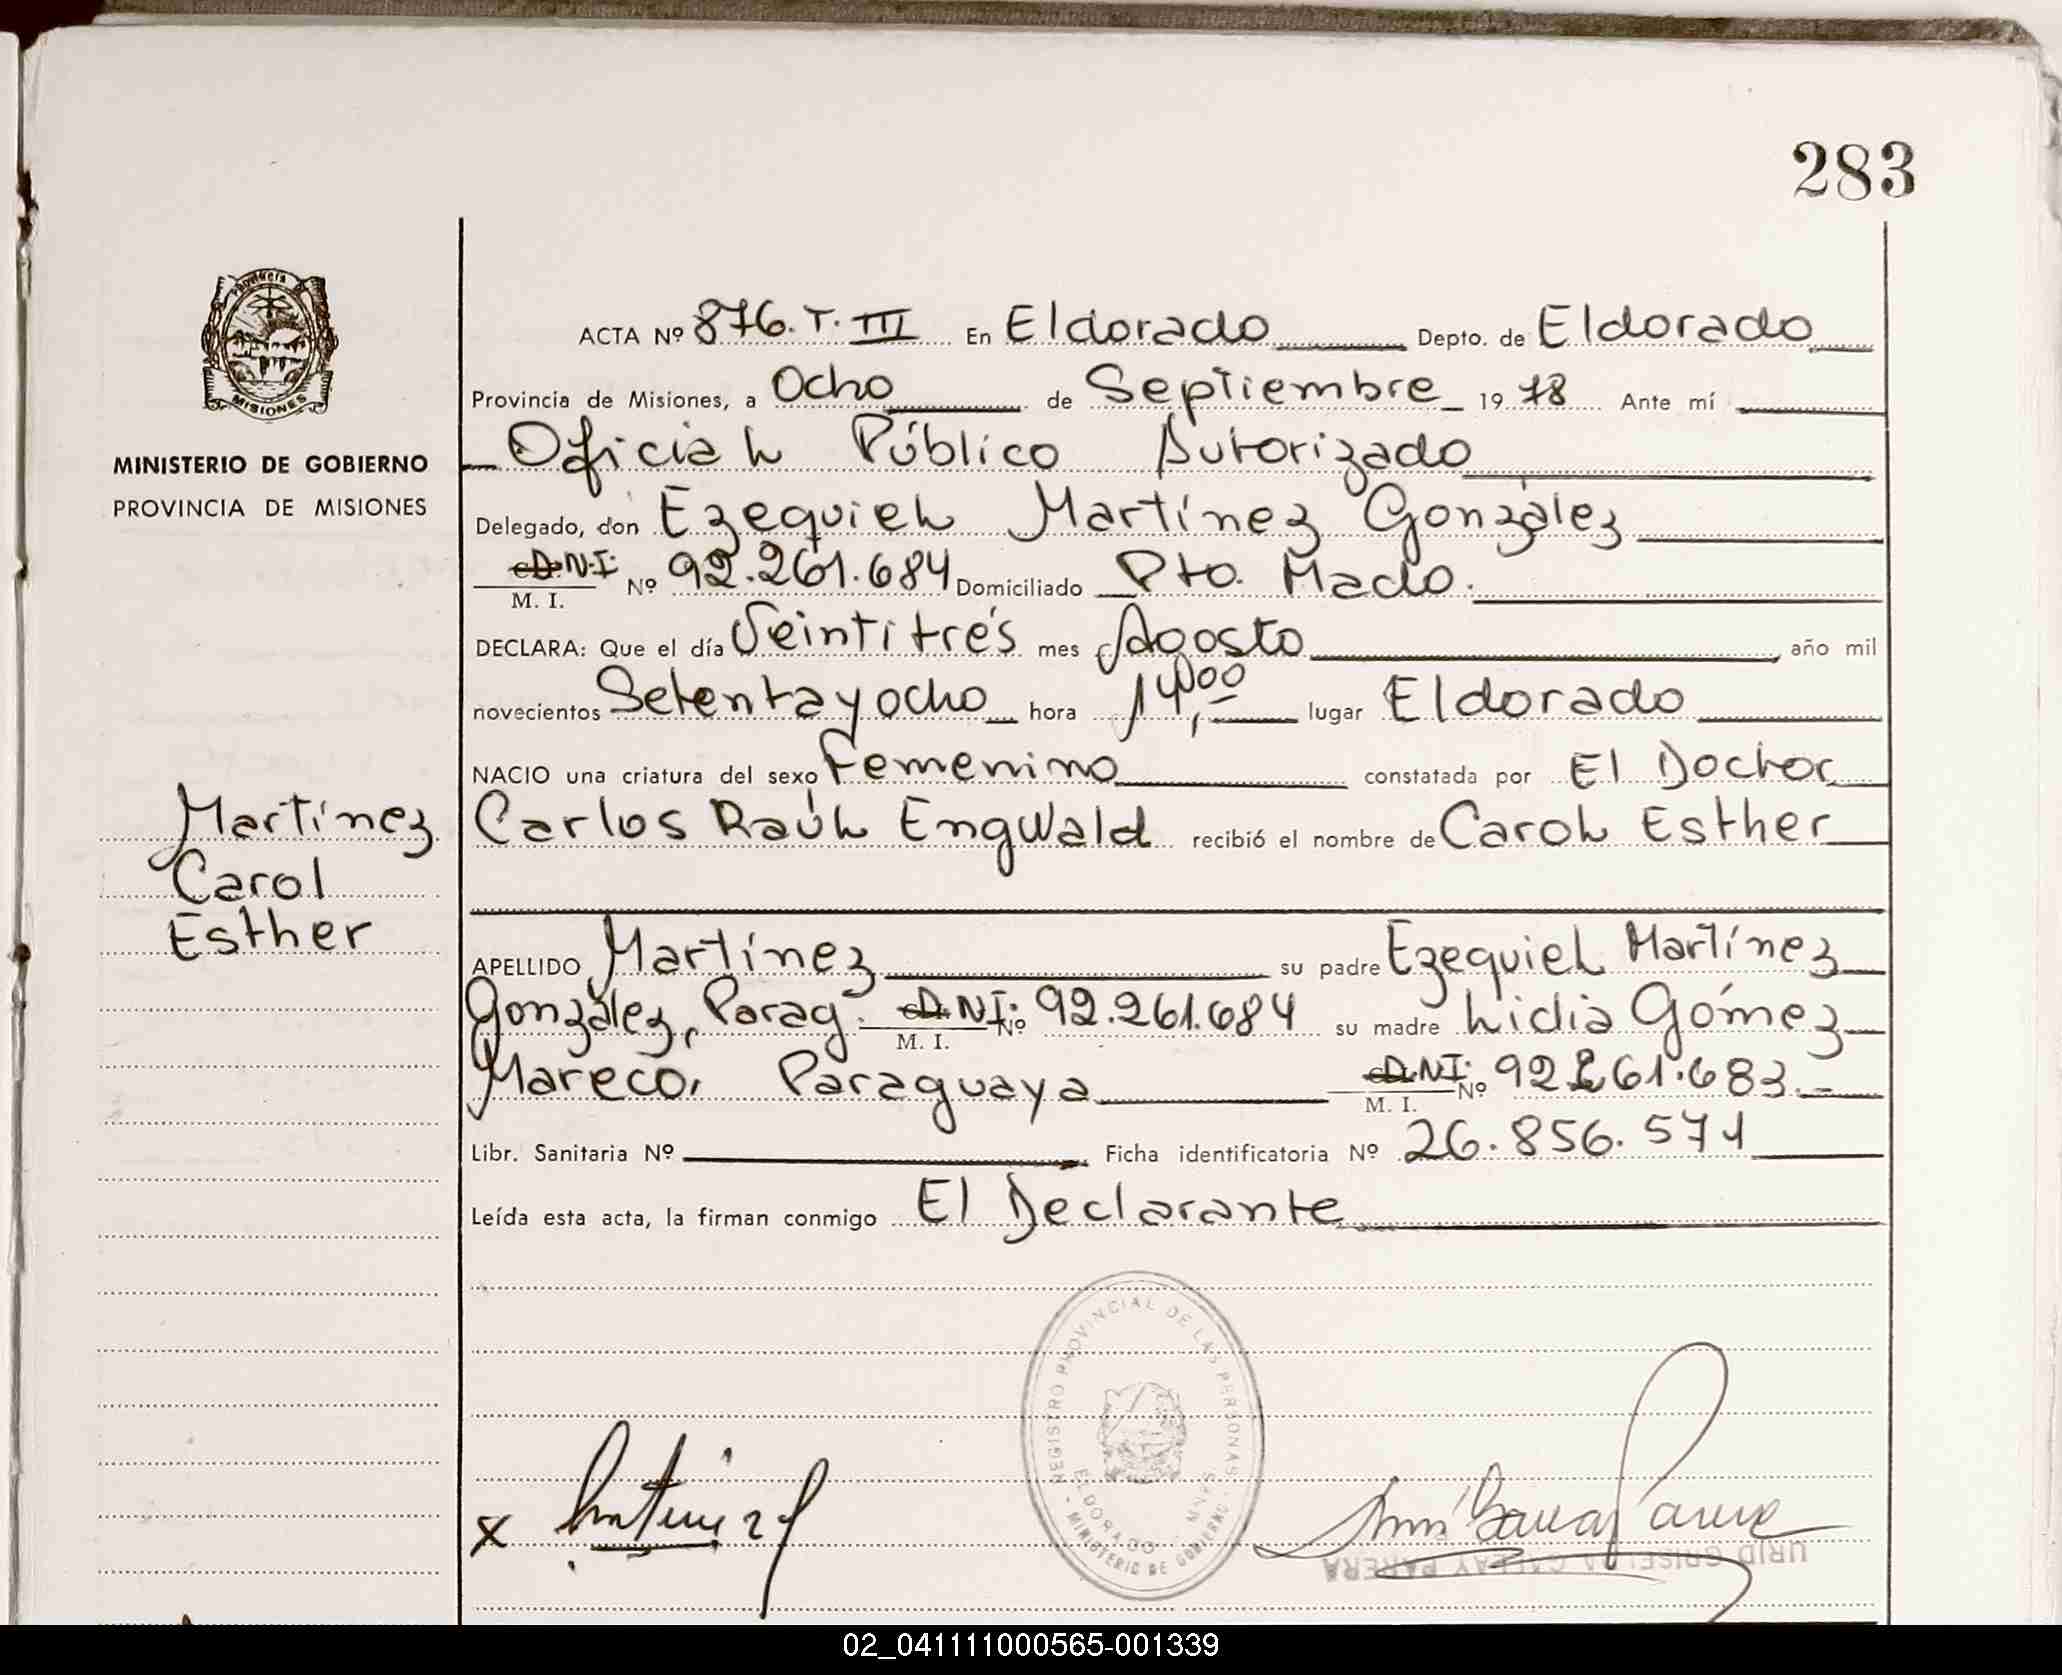 283
PROVINCIA
MISIONES
MINISTERIO DE GOBIERNO
PROVINCIA DE MISIONES
ACTA Nº 876. T. III En Eldorado Depto. de Eldorado
Provincia de Misiones, a Ocho de Septiembre 1978 Ante mí
Oficial Público Autorizado
Delegado, don Ezequiel Martínez González
D.N.I. Nº 92.261.684 Domiciliado Pto. Mado.
M. I.
DECLARA: Que el día Veintitrés mes Agosto año mil
novecientos Setenta y ocho hora 14,00 lugar Eldorado
NACIO una criatura del sexo Femenino constatada por El Doctor
Carlos Raúl Engwald recibió el nombre de Carol Esther
Martínez
Carol
Esther
APELLIDO Martínez su padre Ezequiel Martínez
González, Parag. D.N.I. Nº 92.261.684 su madre Lidia Gómez
M. I.
Mareco, Paraguaya D.N.I. Nº 92.261.683.-
M. I.
Libr. Sanitaria Nº Ficha identificatoria Nº 26.856.571
Leída esta acta, la firman conmigo El Declarante
REGISTRO PROVINCIAL DE LAS PERSONAS
ELDORADO MNES
MINISTERIO DE GOBIERNO
x
PARERA
02_041111000565-001339